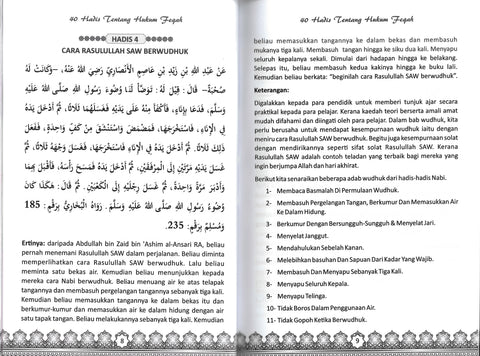 40 Hadis Tentang Hukum Feqah
HADIS 4
CARA RASULULLAH SAW BERWUDHUK
عَنْ عَبْدِ اللَّهِ بْنِ زَيْدِ بْنِ عَاصِمٍ الْأَنْصَارِيِّ رَضِيَ اللَّهُ عَنْهُ، –وَكَانَتْ لَهُ
صُحْبَةٌ– قَالَ: قِيلَ لَهُ: تَوَضَّأْ لَنَا وُضُوءَ رَسُولِ اللَّهِ صَلَّى اللَّهُ عَلَيْهِ
وَسَلَّمَ، فَدَعَا بِإِنَاءٍ، فَأَكْفَأَ مِنْهُ عَلَى يَدَيْهِ فَغَسَلَهُمَا ثَلَاثًا، ثُمَّ أَدْخَلَ يَدَهُ
فِي الْإِنَاءِ، فَاسْتَخْرَجَهَا، فَمَضْمَضَ وَاسْتَنْشَقَ مِنْ كَفٍّ وَاحِدَةٍ، فَفَعَلَ
ذَلِكَ ثَلَاثًا، ثُمَّ أَدْخَلَ يَدَهُ فَاسْتَخْرَجَهَا، فَغَسَلَ وَجْهَهُ ثَلَاثًا، ثُمَّ
غَسَلَ يَدَيْهِ مَرَّتَيْنِ إِلَى الْمِرْفَقَيْنِ، ثُمَّ أَدْخَلَ يَدَهُ فَمَسَحَ رَأْسَهُ، فَأَقْبَلَ بِهِمَا
وَأَدْبَرَ مَرَّةً وَاحِدَةً، ثُمَّ غَسَلَ رِجْلَيْهِ إِلَى الْكَعْبَيْنِ. ثُمَّ قَالَ: هَكَذَا كَانَ
وُضُوءُ رَسُولِ اللَّهِ صَلَّى اللَّهُ عَلَيْهِ وَسَلَّمَ. رَوَاهُ الْبُخَارِيُّ بِرَقْمِ: 185
وَمُسْلِمٌ بِرَقْمِ: 235.
Ertinya: daripada Abdullah bin Zaid bin 'Ashim al-Ansari RA, beliau
pernah menemani Rasulullah SAW dalam perjalanan. Beliau diminta
memperlihatkan cara Rasulullah SAW berwudhuk. Lalu beliau
meminta satu bekas air. Kemudian beliau menunjukkan kepada
mereka cara Nabi berwudhuk. Beliau menuang air ke atas telapak
tangannya dan membasuh pergelangan tangannya sebanyak tiga kali.
Kemudian beliau memasukkan tangannya ke dalam bekas itu dan
berkumur-kumur dan memasukkan air ke dalam hidung dengan air
satu tapak tangan. Beliau melakukannya sebanyak tiga kali. Kemudian
8
40 Hadis Tentang Hukum Feqah
beliau memasukkan tangannya ke dalam bekas dan membasuh
mukanya tiga kali. Membasuh tangan hingga ke siku dua kali. Menyapu
seluruh kepalanya sekali. Dimulai dari hadapan hingga ke belakang.
Selepas itu, beliau membasuh kedua kakinya hingga ke buku lali.
Kemudian beliau berkata: "beginilah cara Rasulullah SAW berwudhuk".
Keterangan:
Digalakkan kepada para pendidik untuk memberi tunjuk ajar secara
praktikal kepada para pelajar. Kerana kaedah teori berserta amali amat
mudah difahami dan diingati oleh para pelajar. Dalam bab wudhuk, kita
perlu berusaha untuk mendapat kesempurnaan wudhuk iaitu dengan
meniru cara Rasulullah SAW berwudhuk. Begitu juga kesempurnaan solat
dengan mendirikannya seperti sifat solat Rasulullah SAW. Kerana
Rasulullah SAW adalah contoh teladan yang terbaik bagi mereka yang
ingin berjumpa Allah dan hari akhirat.
Berikut kita senaraikan beberapa adab wudhuk dari hadis-hadis Nabi.
1- Membaca Basmalah Di Permulaan Wudhuk.
2- Membasuh Pergelangan Tangan, Berkumur Dan Memasukkan Air
Ke Dalam Hidung.
3- Berkumur Dengan Bersungguh-Sungguh & Menyelat Jari.
4- Menyelat Janggut.
5- Mendahulukan Sebelah Kanan.
6- Melebihkan basuhan Dan Sapuan Dari Kadar Yang Wajib.
7- Membasuh Dan Menyapu Sebanyak Tiga Kali.
8- Menyapu Seluruh Kepala.
9- Menyapu Telinga.
10- Tidak Boros Dalam Penggunaan Air
11- Tidak Gopoh Ketika Berwudhuk.
9